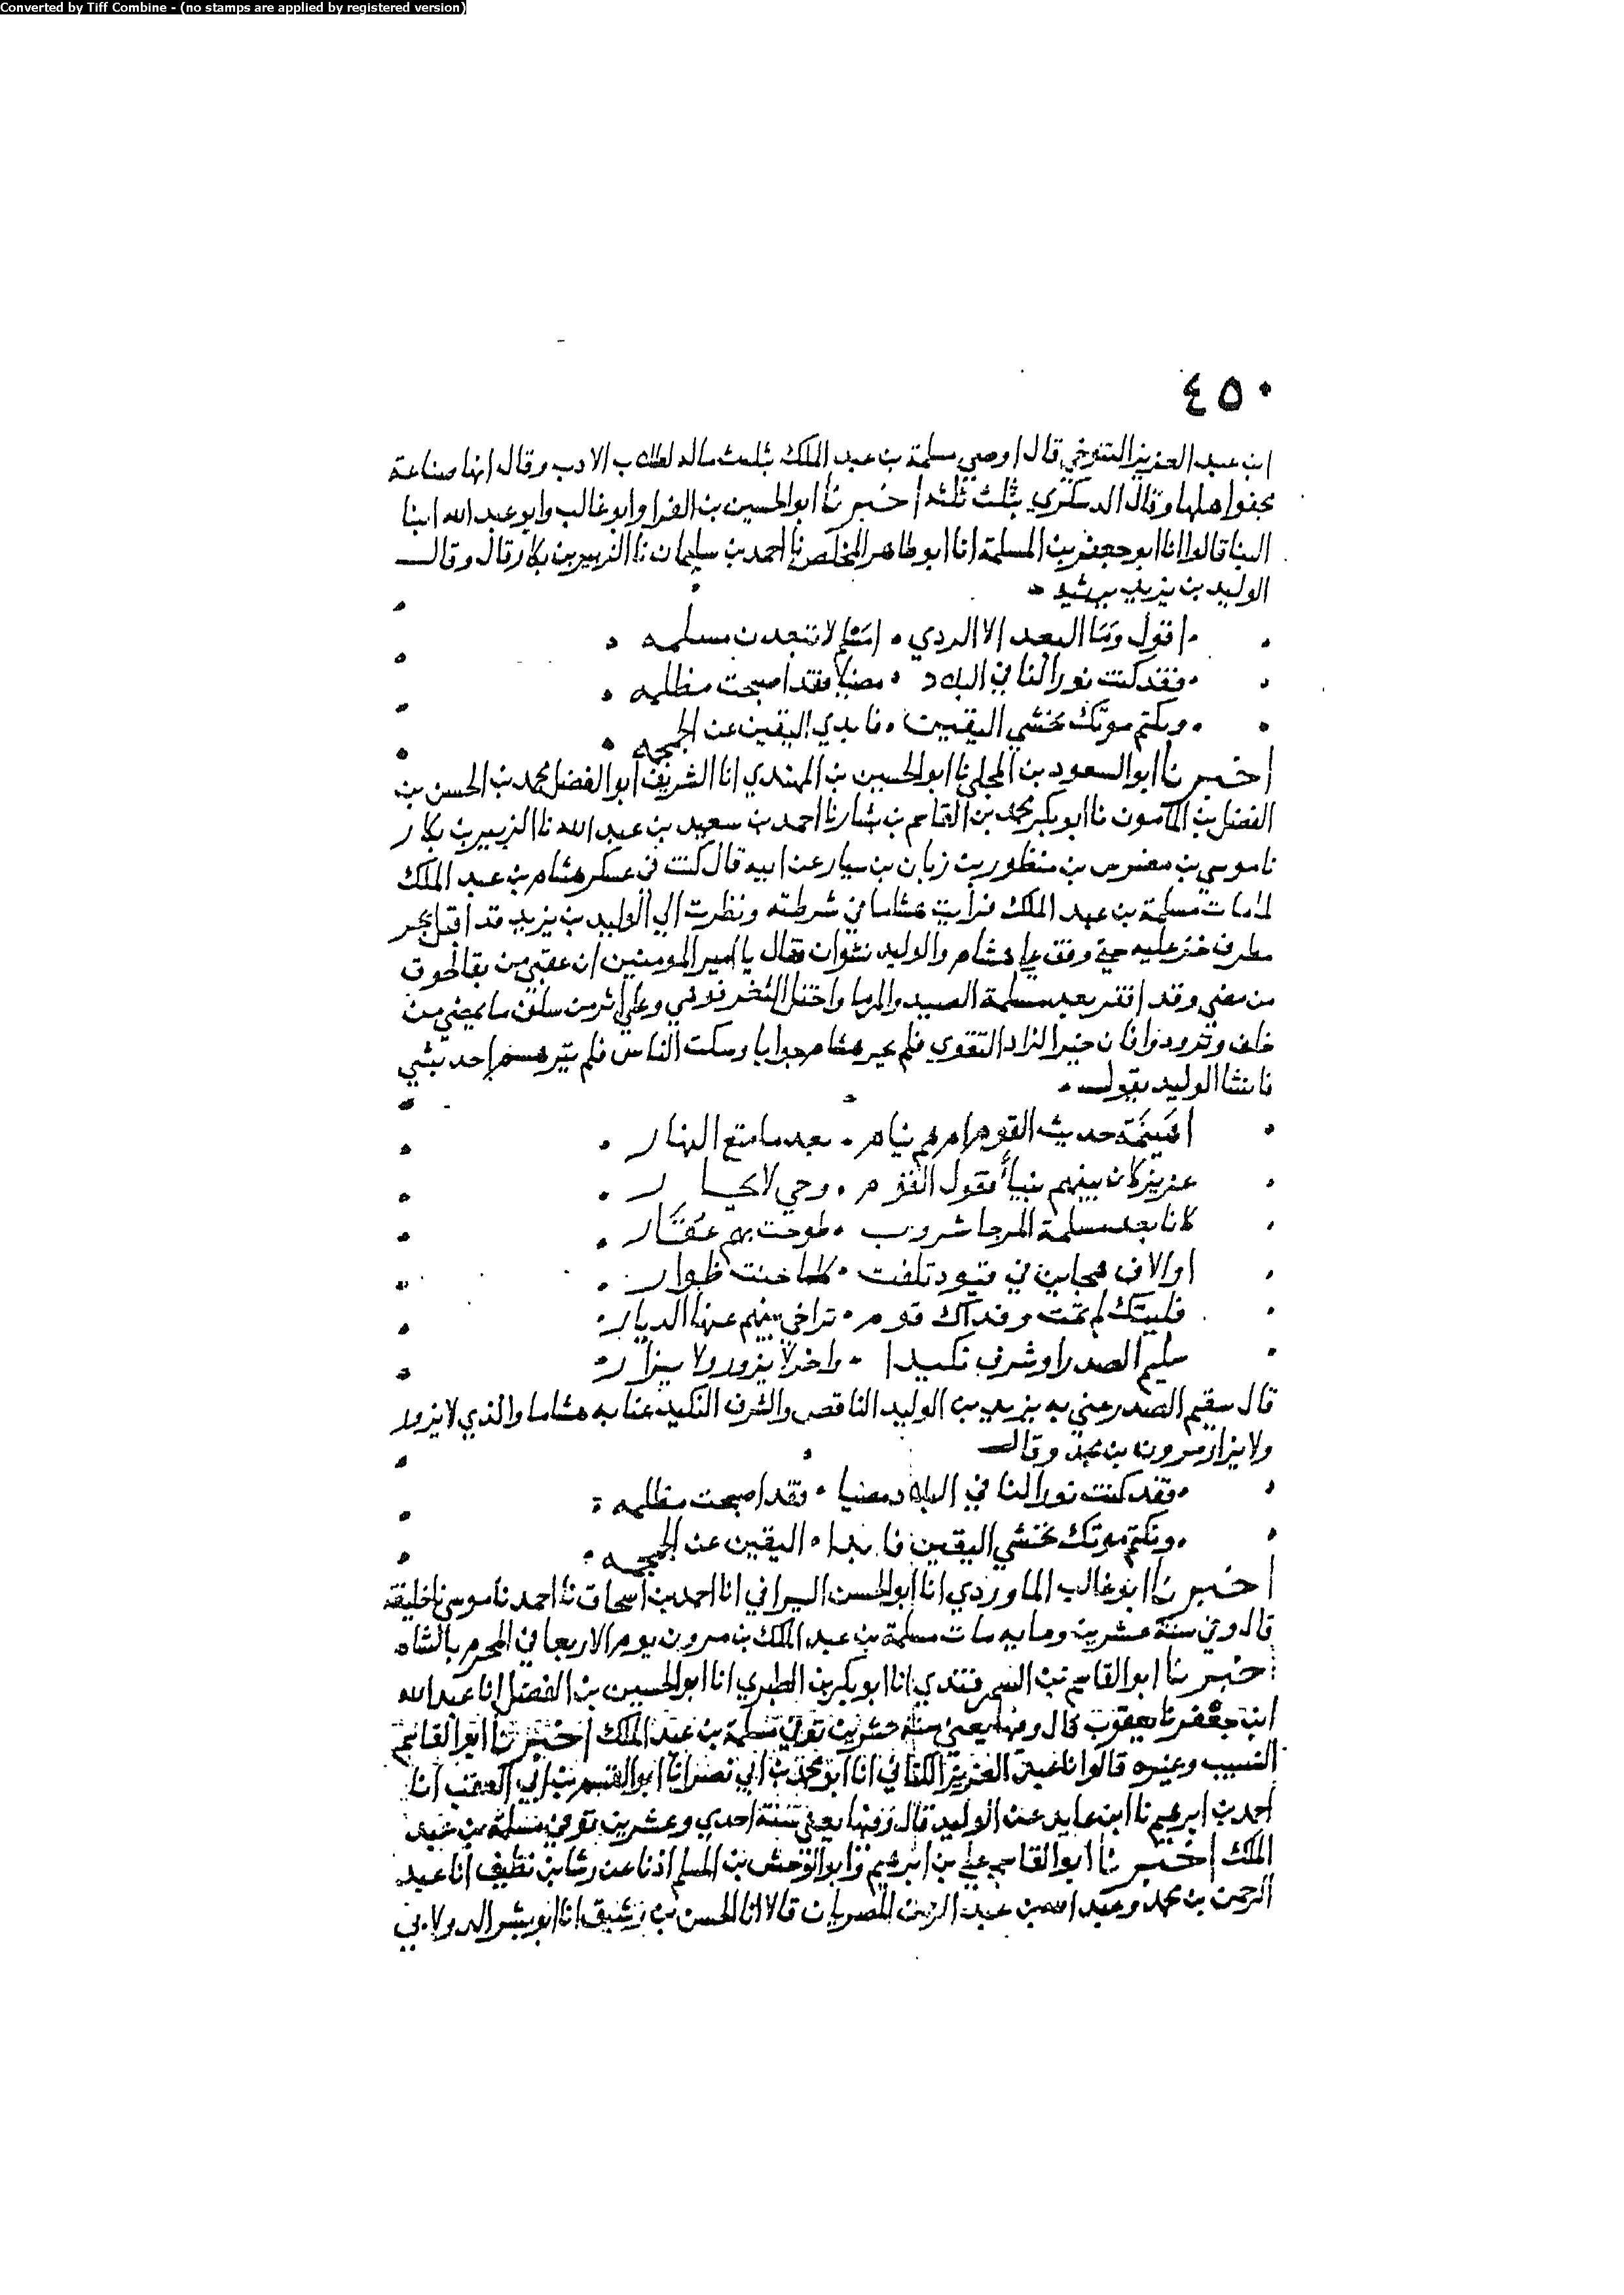 Converted by Tiff Combine - (no stamps are applied by registered version)
٤٥٠
ابن عبد العزيز التنوخي قال اوصي مسلمة بن عبد الملك بثلث ماله لطلاب الادب وقال انها صناعة
مجفوا هلها وقال الدسكري بثلث ثلثه اخبرنا ابو الحسين بن الفرا وابو غالب وابو عبد الله ابنا
البنا قالوا انا ابو جعفر بن المسلمة انا ابو طاهر المخلص نا احمد بن سليمان نا الزبير بن بكار قال وقال
الوليد بن يزيد يرثيه
اقول وما البعد الا الردي امسلم لا تبعدن مسلمه
فقد كنت نورا لنا في البلاد مضيا فقد اصبحت مظلمه
ونكتم موتك نخشي اليقين فابدي اليقين عن الجمجمه
اخبرنا ابو السعود بن المجلي نا ابو الحسين بن المهتدي انا الشريف ابو الفضل محمد بن الحسن بن
الفضل بن المامون نا ابو بكر محمد بن القاسم بن بشار نا احمد بن سعيد بن عبد الله نا الزبير بن بكار
نا موسي بن مضرس بن منظور بن زبان بن سيار عن ابيه قال كنت في عسكر هشام بن عبد الملك
لما مات مسلمة بن عبد الملك فرايت هشاما في شرطته ونظرت الي الوليد بن يزيد قد اقبل يجر
مطرف خز عليه حتي وقف علي هشام والوليد نشوان فقال يا امير المومنين ان عقبي من بقا لحوق
من مضي وقد اقفر بعد مسلمة الصيد والرما واختل الثغر فوهي وعلي اثر من سلف ما يمضي من
خلف وتزودوا فان خير الزاد التقوي فلم يحر هشام جوابا وسكت الناس فلم ينبس احد بشي
فانشا الوليد يقول
اهينمة حديث القوم ام هم نيام بعد ما متع النهار
عزيز كان بينهم نبيا فقول القوم وحي لا يحار
كانا بعد مسلمة المرجا شروب طوحت بهم عقار
او الاف هجاين في قيود تلفت كلما حنت ظوار
فليتك لم تمت وفداك قوم تراخي بينهم عنا الديار
سليم الصدر او شرف نكيدا واخر لا يزور ولا يزار
قال سقيم الصدر عني به يزيد بن الوليد الناقص والشرف النكيد عنا به هشاما والذي لا يزور
ولا يزار مرون بن محمد وقال
فقد كنت نورا لنا في البلاد مضيا فقد اصبحت مظلمه
ونكتم موتك نخشي اليقين فابدا اليقين عن الجمجمه
اخبرنا ابو غالب الماوردي انا ابو الحسن السيرافي انا احمد بن اسحاق نا احمد نا موسي نا خليفة
قال وفي سنة عشرين وماية مات مسلمة بن عبد الملك بن مرون يوم الاربعا في المحرم بالشام
اخبرنا ابو القاسم بن السمرقندي انا ابو بكر بن الطبري انا ابو الحسين بن الفضل انا عبد الله
ابن جعفر نا يعقوب قال وفيها يعني سنة عشرين توفي مسلمة بن عبد الملك اخبرنا ابو القاسم
النسيب وغيره قالوا انا عبد العزيز الكتاني انا ابو محمد بن ابي نصر انا ابو القسم بن ابي العقب انا
احمد بن ابرهيم نا ابن عايد عن الوليد قال وفيها يعني سنة احدي وعشرين توفي مسلمة بن عبد
الملك اخبرنا ابو القاسم علي بن ابرهيم وابو الوحش بن المسلم اذنا عن رشا بن نظيف انا عبد
الرحمن بن محمد وعبد الله بن عبد الرحمن المصريان قالا انا الحسن بن رشيق انا ابو بشر الدولابي